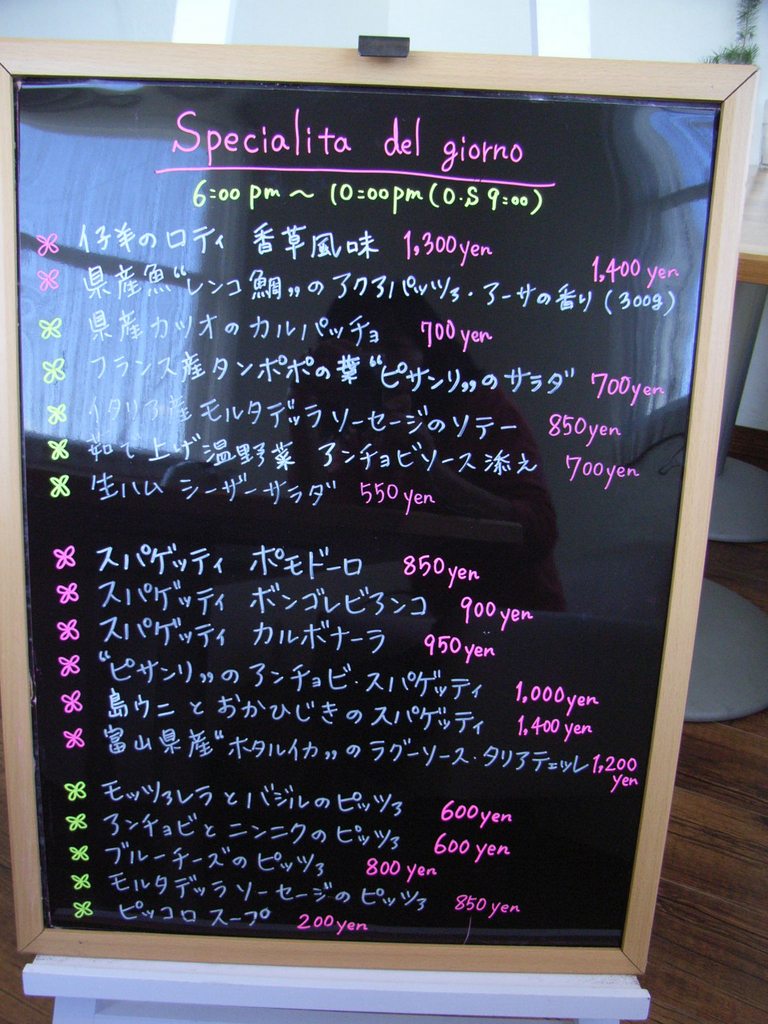 Specialita del giorno
6:00 pm ~ 10:00pm (O.S 9:00)
仔羊のロティ 香草風味 1,300 yen
県産魚"レンコ鯛"のアクアパッツァ・アーサの香り (300g) 1,400 yen
県産カツオのカルパッチョ 700 yen
フランス産タンポポの葉"ピサンリ"のサラダ 700 yen
イタリア産モルタデッラソーセージのソテー 850 yen
茹で上げ温野菜 アンチョビソース添え 700 yen
生ハム シーザーサラダ 550 yen
スパゲッティ ポモドーロ 850 yen
スパゲッティ ボンゴレビアンコ 900 yen
スパゲッティ カルボナーラ 950 yen
"ピサンリ"のアンチョビ・スパゲッティ 1,000 yen
島ウニとおかひじきのスパゲッティ 1,400 yen
富山県産"ホタルイカ"のラグーソース・タリアテェッレ 1,200 yen
モッツァレラとバジルのピッツァ 600 yen
アンチョビとニンニクのピッツァ 600 yen
ブルーチーズのピッツァ 800 yen
モルタデッラソーセージのピッツァ 850 yen
ピッコロスープ 200 yen